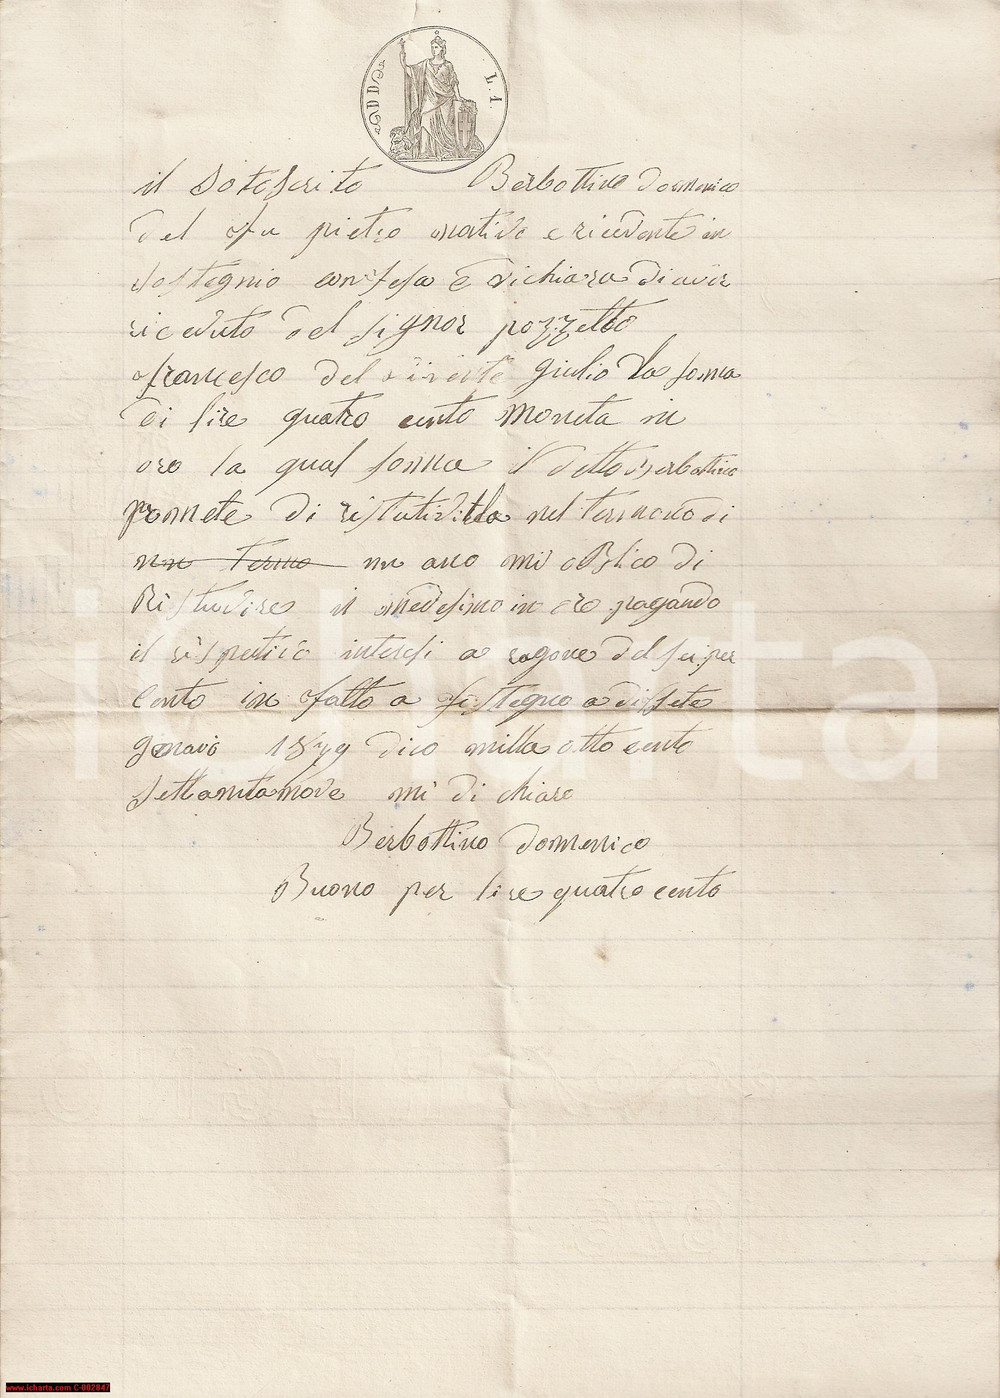 DD
L. 1.
il Sotoscrito Berbottino domenico
del fu pietro nativo e ricedente in
sostegnio confesa e dichiara di aver
riceuto del signor pozzetto
francesco del vivente giulio la soma
di lire quatro cento moneta in
oro la qual somma il detto Berbottino
promete di ristituvilla nel termono di
un termo un ano mi obblico di
Ristuvire il medesimo in oro pagando
il rispetivo interesi a ragone del sei per
cento in fatto a sostegno a dissete
genavio 1879 dico milla otto cento
settantanove mi di chiaro
Berbottino domenico
Buono per lire quatro cento
icharta
www.icharta.com C-002847